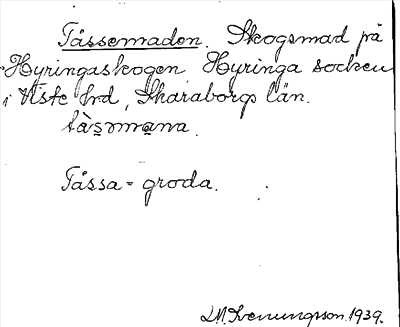 Tåssemaden. Skogsmad på
Hyringaskogen, Hyringa socken
i Viste hrd, Skaraborgs län.
tàs̠ɔmɑ̠na.
Tåssa = groda.
L.M. Svenungsson. 1939.